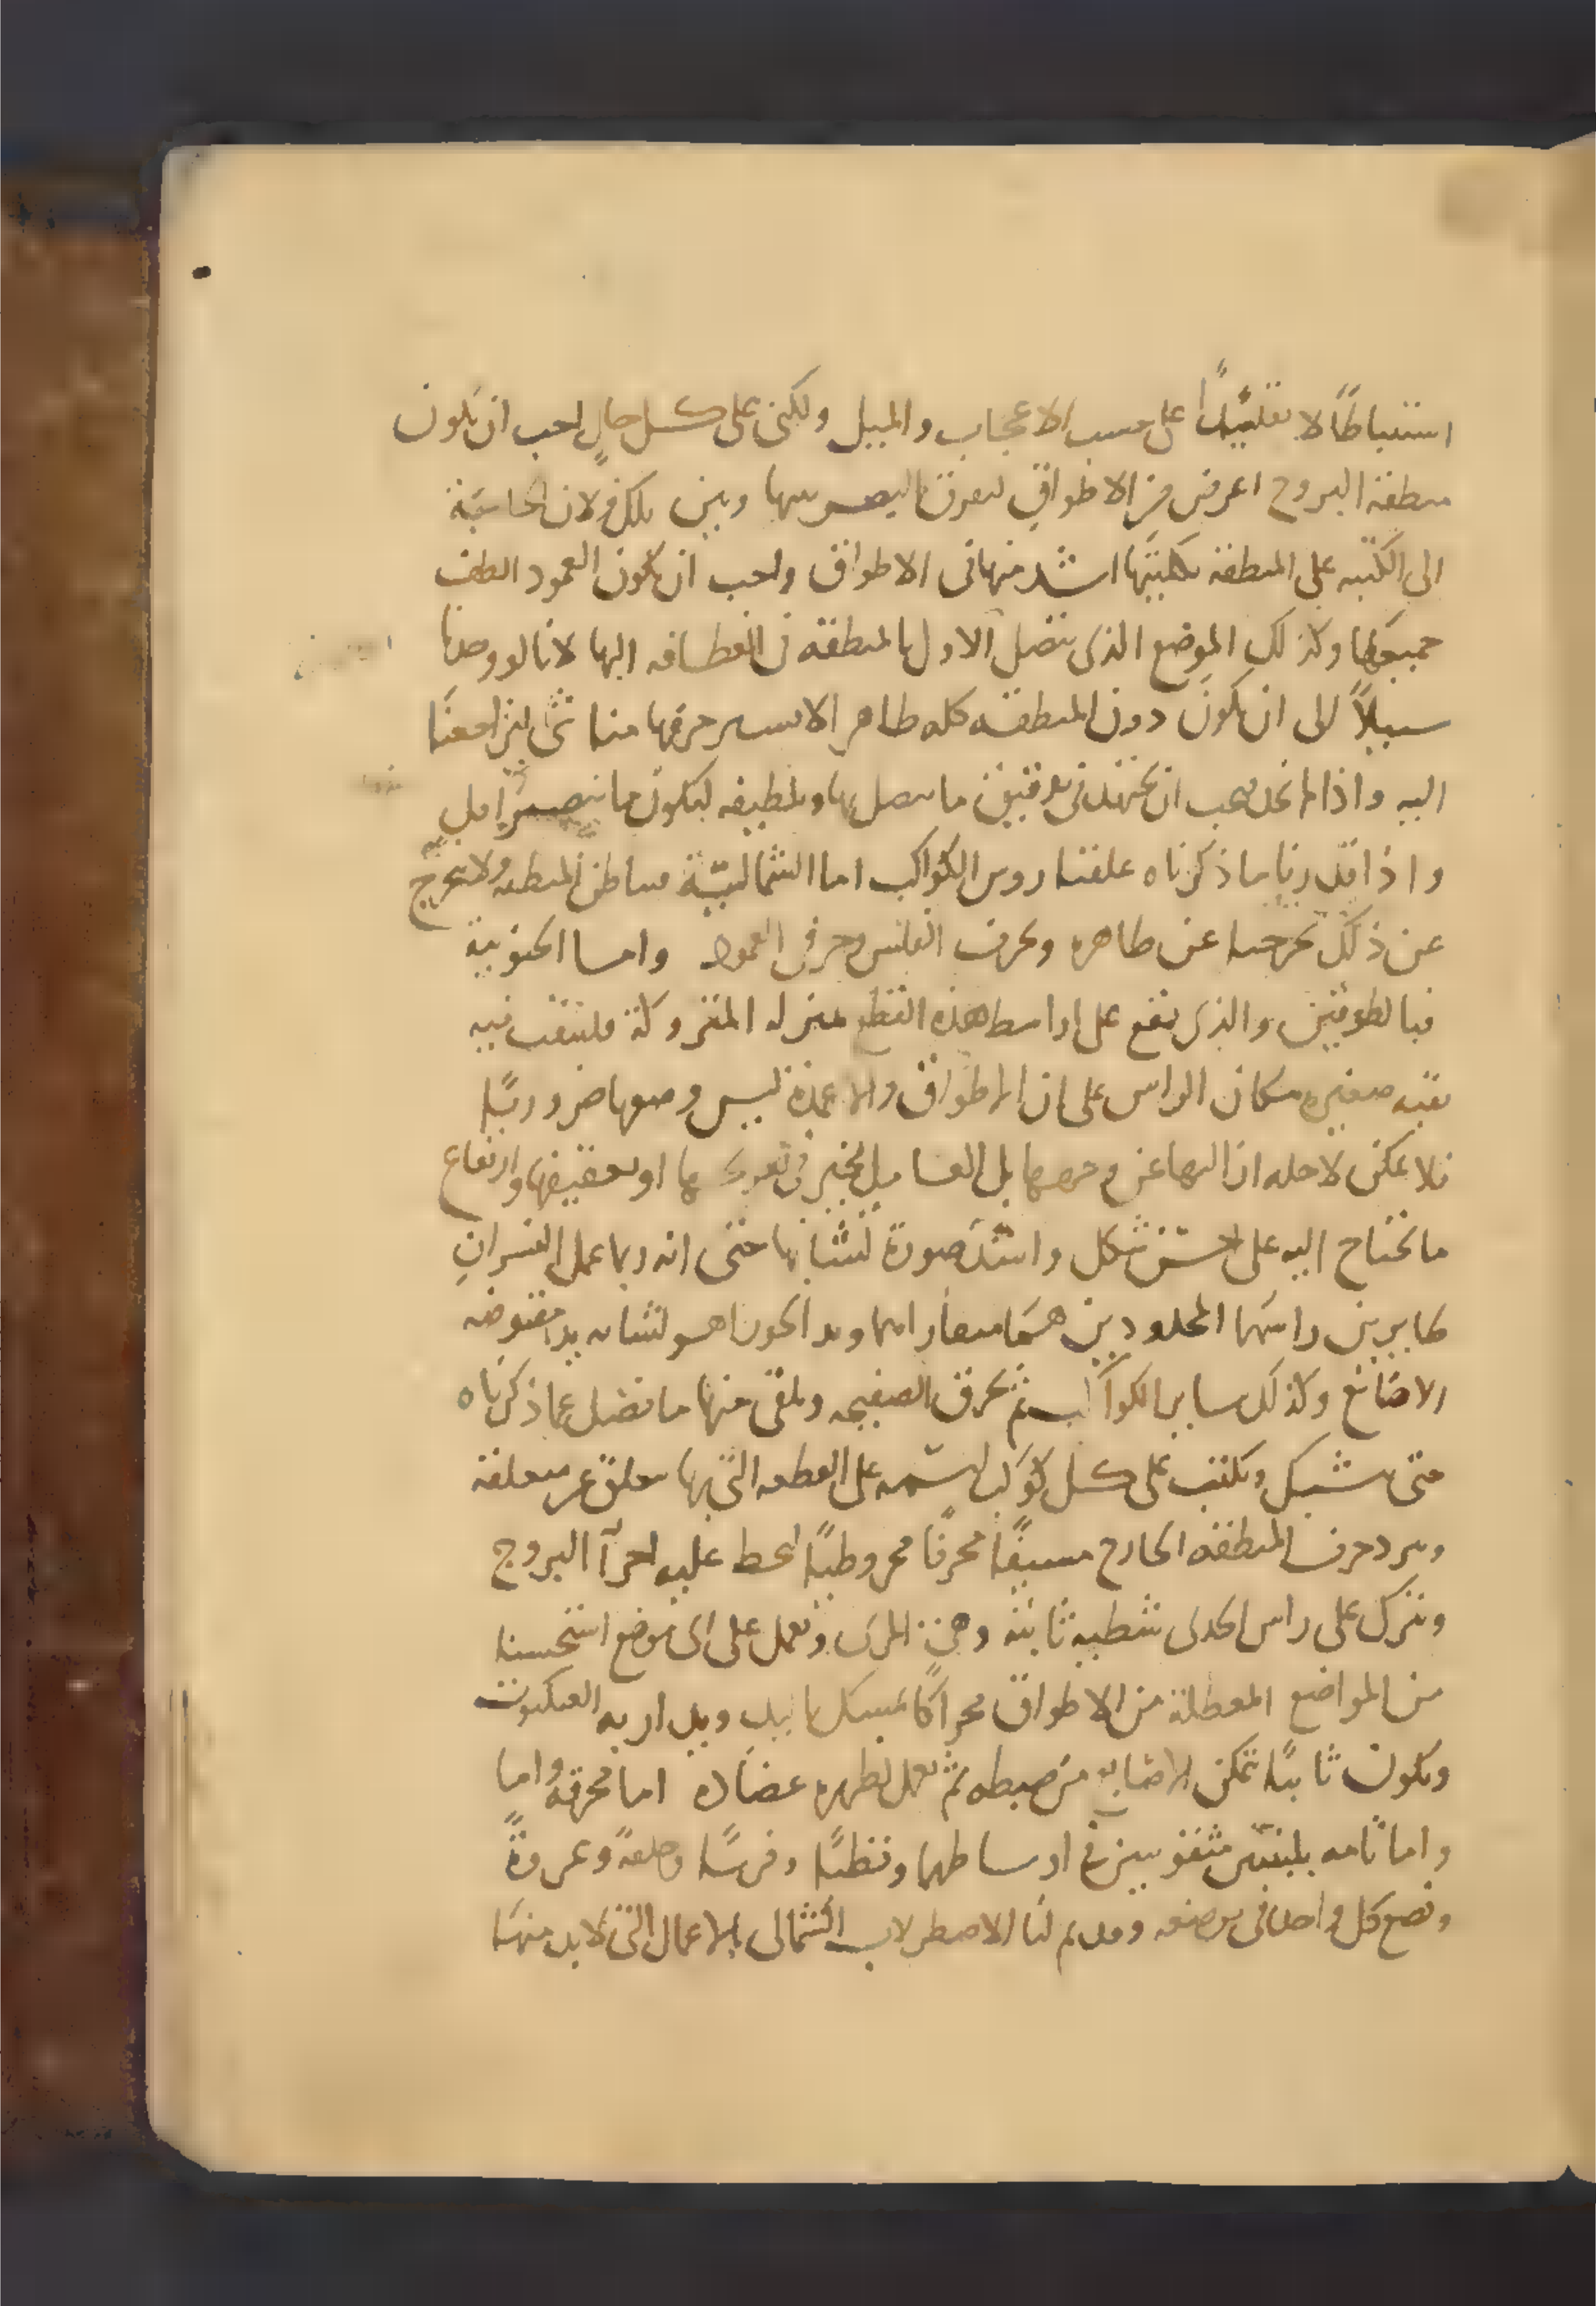 استنباطًا لا تقليدًا على حسب الاعجاب والميل ولكنى على كل حالٍ احب ان يكون
منطقة البروج اعرض من الاطواق ليفرق البصر بينها وبين تلك ولان الحاجة
الى الكتبه على المنطقة بكليتها اشد منها فى الاطواق واحب ان يكون العمود الطف
جميعها وكذلك الموضع الذى يتصل الاول بالمنطقة فى انعطافه اليها لانا لو وجدنا
سبيلاً الى ان يكون دون المنطقة كله ظاهر الاسير حرفها منا شى لنزاحمنا
اليه واذا لم نجد فيجب ان نجتهد فى تدقيق ما يتصل بها وتلطيفه ليكون ما ينصر اقل
واذا قدرنا ما ذكرناه علقنا روس الكواكب اما الشمالية فباطن المنطقة ولا يخرج
عن ذلك نخرجه عن ظاهره وبحرف القلس وحرفى العمود واما الجنوبية
فبالطوقين والذى يقع على اواسط هذه القطع منزله المتروكة فليثقب فيه
ثقبه صغيره مكان الراس على ان الاطواق والاعمدة ليس وضعها ضروريًا
فلا يمكن لاجله ازالتها عن وجهها بل العامل مخير فى تحريكها او تعقيفها وارتفاع
ما يحتاج اليه على احسن شكل واشد صورة تشابها حتى انه ربما عمل النسران
كطايرين راسهما المحدودين هما منقاراهما ويد الجوزا هو لتشابه يد مقبوضه
الاصابع وكذلك ساير الكواكب ثم نخرق الصفيحه ونلقى منها ما فضل عما ذكرناه
حتى يتشبك ونكتب على كل كوكب اسمه على القطعه التى بها معلق غير متعلقه
ونبرد حرف المنطقه الخارج مسيفًا محرفًا مخروطيًا لخط عليه اجزآ البروج
ونترك على راس الجدى شظيه ثابته وهى المرى ونعمل على اى موضع استحسنا
من المواضع المعطلة من الاطواق محراكًا يمسك باليد ويدار به العنكبوت
ويكون ثابتًا تمكن الاصابع من ضبطه ثم نعمل لظهره عضاده اما محرفه واما
واما تامه بلبنتين مثقوبتين فى اوساطهما وقطبًا وفرسًا وحلقةً وعروةً
ونضع كل واحد فى موضعه وقد تم لنا الاصطرلاب الشمالى بالاعمال التى لا بد منها